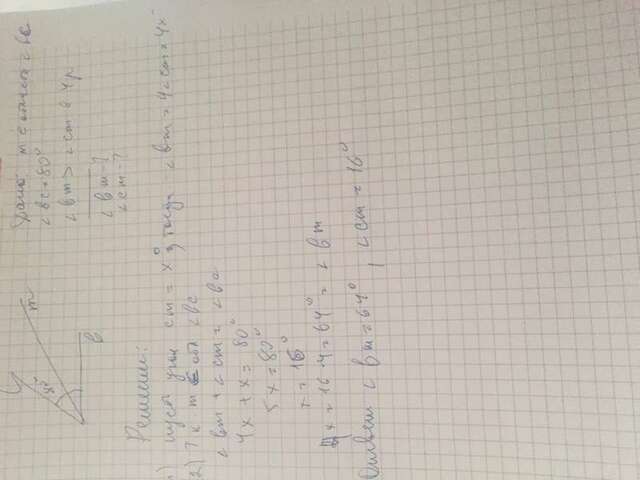 Дано: m
∠bc = 80°
∠bm > ∠cm в 4р
∠bm-?
∠cm-?
c
x°
m
b
Решение:
1) пусть угол cm = x°, тогда ∠bm = 4∠cm = 4x°
2) Т к m ∠bc
∠bm + ∠cm = ∠bc
4x + x = 80°
5x = 80°
x = 16°
4x = 16·4 = 64° = ∠bm
Ответ ∠bm = 64°, ∠cm = 16°